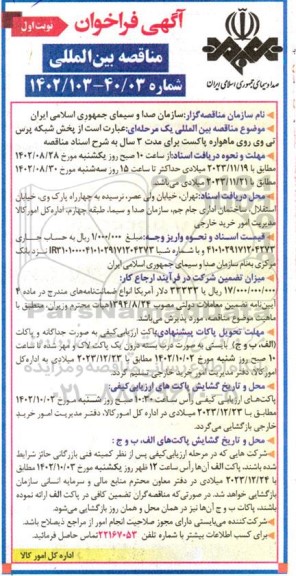 آگهی فراخوان
نوبت اول
مناقصه بین المللی
شماره ۱۴۰۲/۱۰۳-۴۰/۰۳
صدا و سیمای جمهوری اسلامی ایران
نام سازمان مناقصه گزار: سازمان صدا و سیمای جمهوری اسلامی ایران
موضوع مناقصه بین المللی یک مرحله ای: عبارت است از پخش شبکه پرس
تی وی روی ماهواره پاکست برای مدت ۲ سال به شرح اسناد مناقصه
مهلت و نحوه دریافت اسناد: از ساعت ۱۰ صبح روز یکشنبه مورخ ۱۴۰۲/۰۸/۲۸
مطابق با ۲۰۲۳/۱۱/۱۹ میلادی حداکثر تا ساعت ۱۵ روز سه شنبه مورخ ۱۴۰۲/۰۸/۳۰
مطابق با ۲۰۲۳/۱۱/۲۱ میلادی می باشد.
محل دریافت اسناد: تهران، خیابان ولی عصر، نرسیده به چهارراه پارک وی، خیابان
استقلال، ساختمان اداری جام جم، سازمان صدا و سیما، طبقه چهارم، اداره کل امور کالا
مدیریت امور خرید خارجی
قیمت اسناد و نحوه واریز وجه: مبلغ ۱/۰۰۰/۰۰۰ ریال به حساب جاری
۴۱۰۱۰۲۹۱۷۱۲۰۴۲۷۳ و با شماره شبا نزد بانک
مرکزی به نام سازمان صدا و سیمای جمهوری اسلامی ایران
میزان تضمین شرکت در فرآیند ارجاع کار:
۱۷/۰۰۰/۰۰۰/۰۰۰ ریال یا ۳۳۳۳۳ دلار آمریکا انواع ضمانت نامه های مندرج در ماده ۴
آیین نامه تضمین معاملات دولتی مصوب ۱۳۹۴/۸/۲۴ هیأت محترم وزیران منطبق با
ماهیت موضوع مناقصه، مورد پذیرش می باشد.
مهلت تحویل پاکات پیشنهادی: پاکت ارزیابی کیفی به صورت جداگانه و پاکات
(الف، ب و ج) بایستی به صورت دربسته، درون یک پاکت لاک و مهر شده تا ساعت
۱۰ صبح روز شنبه مورخ ۱۴۰۲/۱۰/۰۲ مطابق با ۲۰۲۳/۱۲/۲۳ میلادی به اداره کل
امور کالا، دفتر مدیریت امور خرید خارجی تسلیم گردد.
محل و تاریخ گشایش پاکت های ارزیابی کیفی:
پاکت های ارزیابی کیفی رأس ساعت ۱۰:۳۰ صبح روز شنبه مورخ ۱۴۰۲/۱۰/۰۲
مطابق با ۲۰۲۳/۱۲/۲۳ میلادی در اداره کل امور کالا، دفتر مدیریت امور خرید
خارجی بازگشایی می گردد.
محل و تاریخ گشایش پاکت های الف، ب و ج:
شرکت هایی که در مرحله ارزیابی کیفی پس از نظر کمیته فنی بازرگانی حائز شرایط
شده باشند، پاکت الف آن ها رأس ساعت ۱۲ ظهر روز یکشنبه مورخ ۱۴۰۲/۱۰/۰۳ مطابق با
۲۰۲۳/۱۲/۲۴ میلادی در دفتر معاون محترم منابع مالی و سرمایه انسانی سازمان
بازگشایی خواهد شد. در صورتی که مناقصه گران تضمین کافی در پاکت الف ارائه نموده
باشند، پاکات ب و ج آن ها نیز در همان محل و همان روز بازگشایی می شود.
شرکت کننده می بایستی دارای مجوز صلاحیت انجام امور از مراجع ذیصلاح باشد.
برای کسب اطلاعات بیشتر با شماره تلفن ۲۲۱۶۷۰۵۳ تماس حاصل فرمائید.
اداره کل امور کالا